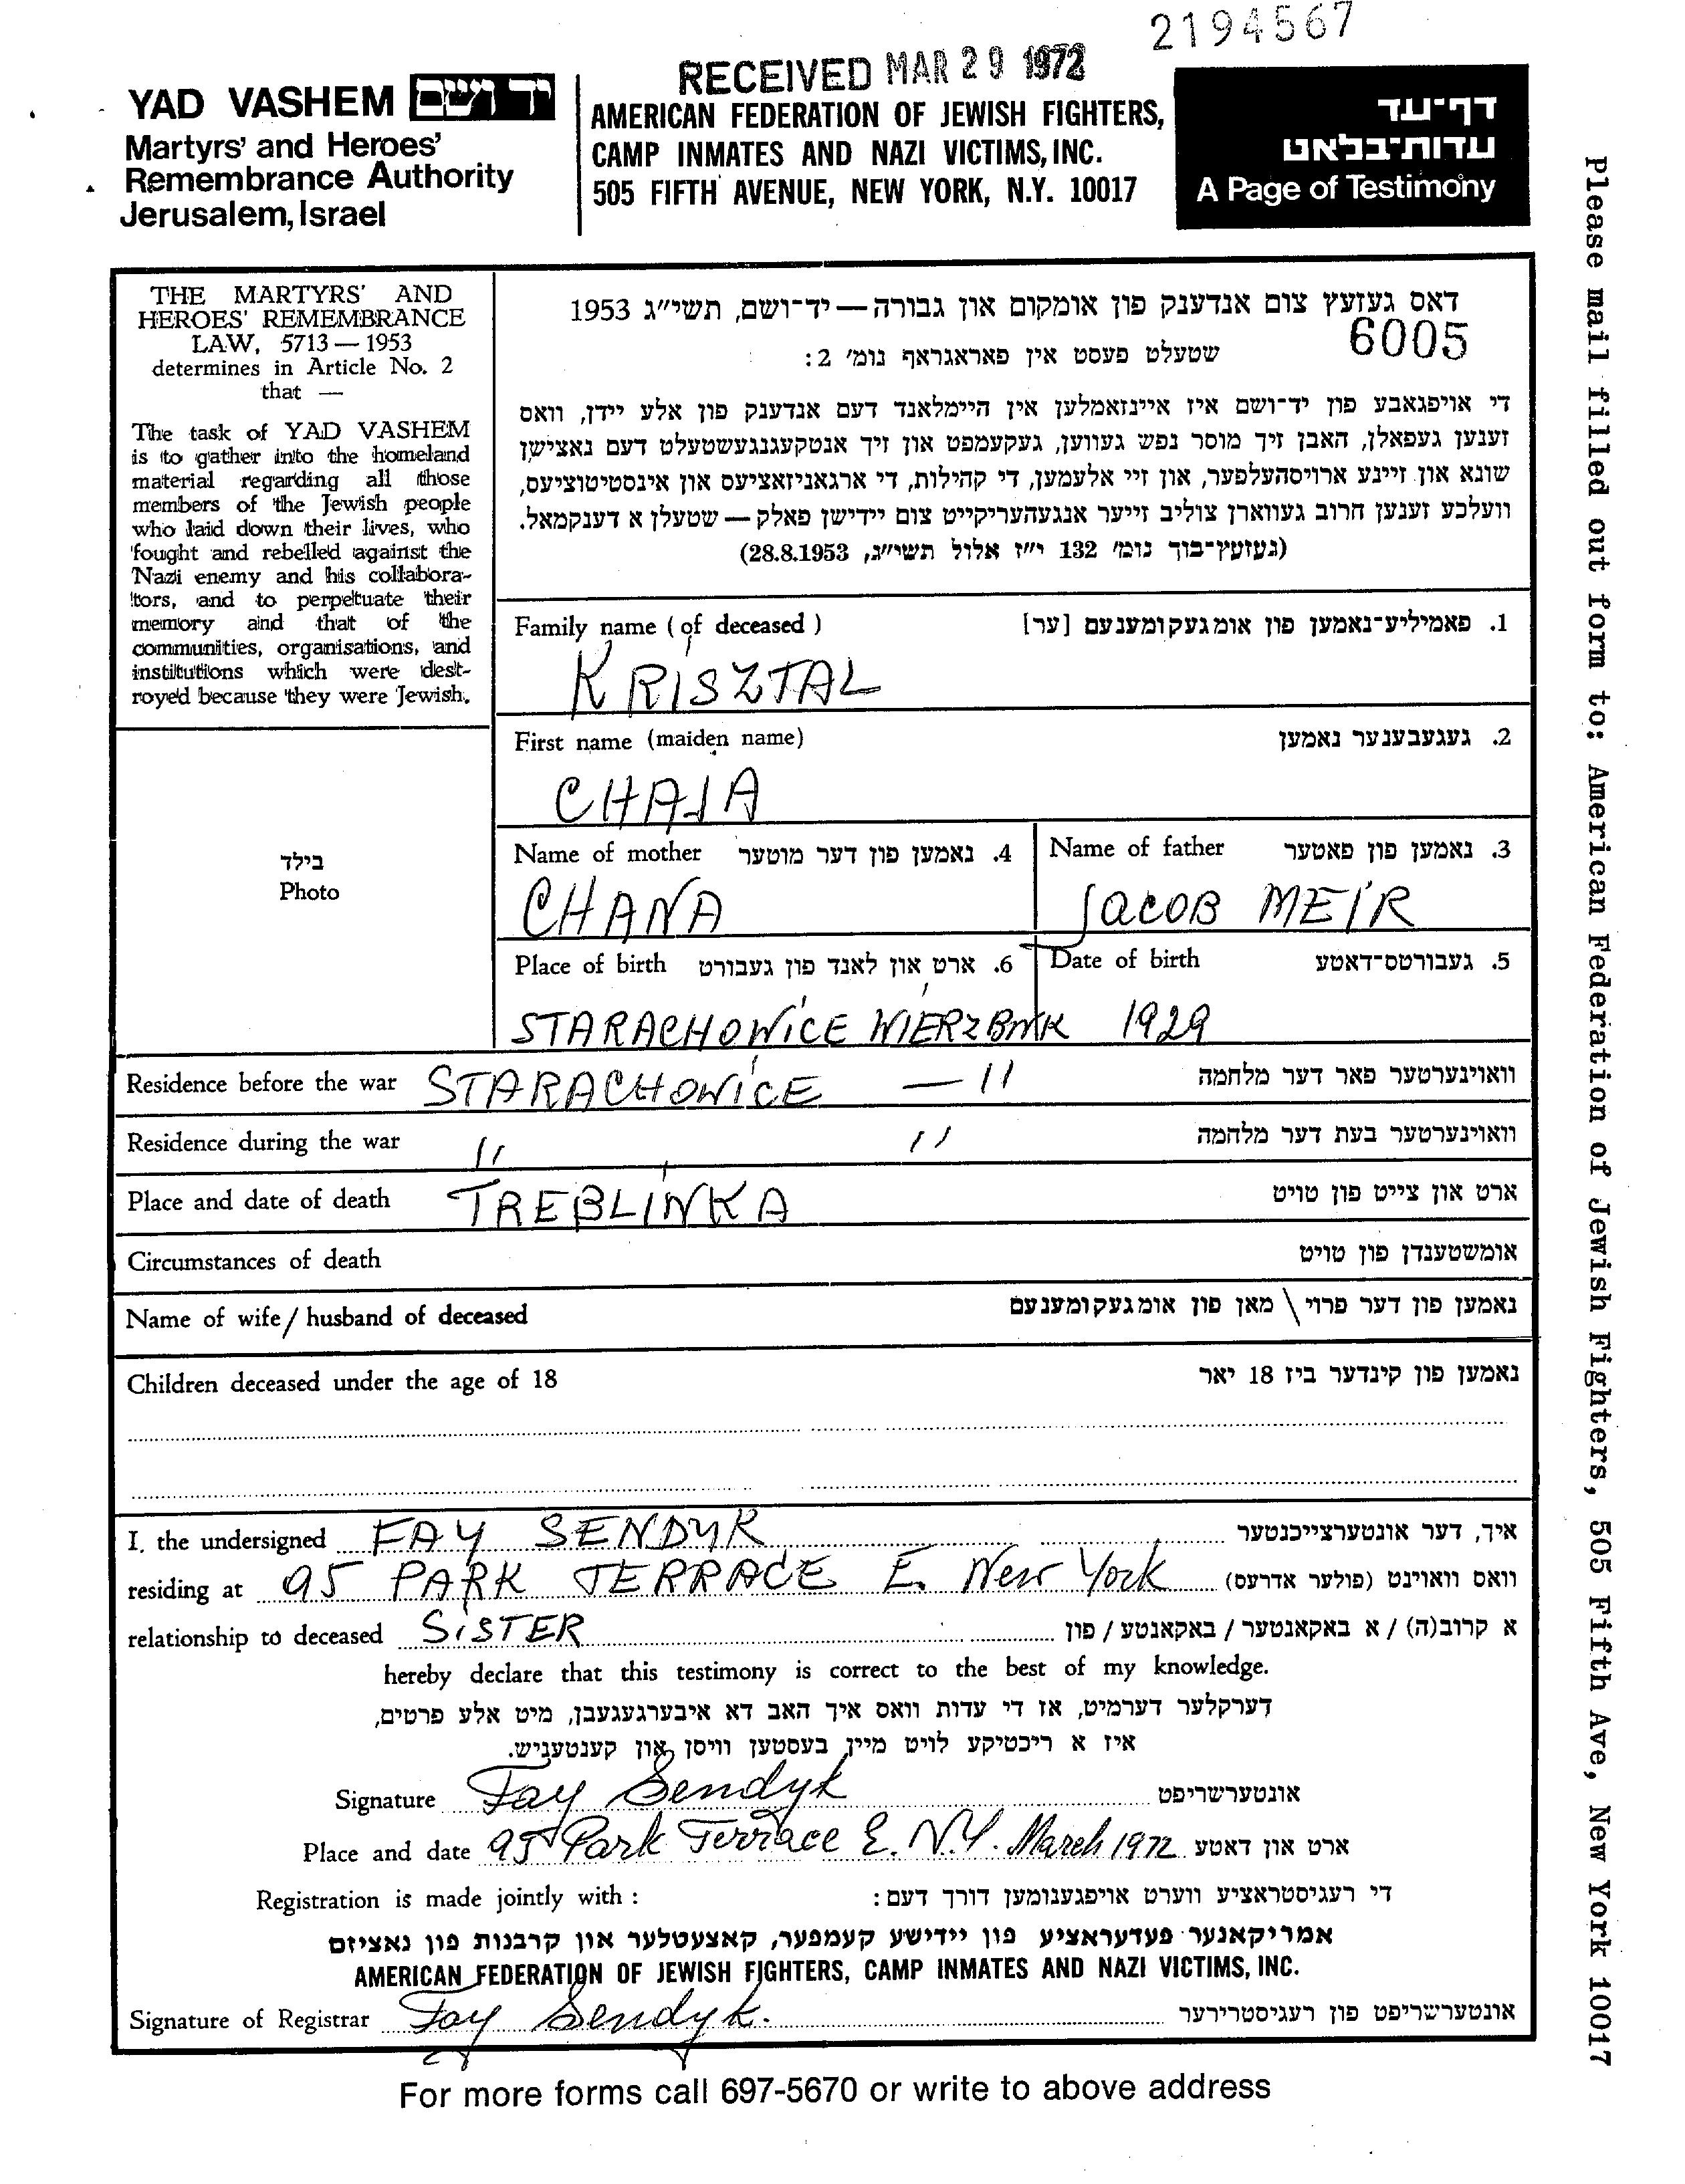 2194567
RECEIVED MAR 29 1972
YAD VASHEM יד ושם
Martyrs' and Heroes'
Remembrance Authority
Jerusalem, Israel
AMERICAN FEDERATION OF JEWISH FIGHTERS,
CAMP INMATES AND NAZI VICTIMS, INC.
505 FIFTH AVENUE, NEW YORK, N.Y. 10017
דף־עד
עדות־בלאט
A Page of Testimony
THE MARTYRS' AND
HEROES' REMEMBRANCE
LAW, 5713 — 1953
determines in Article No. 2
that —
The task of YAD VASHEM
is to gather into the homeland
material regarding all those
members of the Jewish people
who laid down their lives, who
fought and rebelled against the
Nazi enemy and his collabora-
tors, and to perpetuate their
memory and that of the
communities, organisations, and
institutions which were dest-
royed because they were Jewish.
דאס געזעץ צום אנדענק פון אומקום און גבורה — יד־ושם, תשי״ג 1953
6005
שטעלט פעסט אין פאראגראף נומ׳ 2:
די אויפגאבע פון יד־ושם איז איינזאמלען אין היימלאנד דעם אנדענק פון אלע יידן, וואס
זענען געפאלן, האבן זיך מוסר נפש געווען, געקעמפט און זיך אנטקעגנגעשטעלט דעם נאצישן
שונא און זיינע ארויסהעלפער, און זיי אלעמען, די קהילות, די ארגאניזאציעס און אינסטיטוציעס,
וועלכע זענען חרוב געווארן צוליב זייער אנגעהעריקייט צום יידישן פאלק — שטעלן א דענקמאל.
(געזעץ־בוך נומ׳ 132 י״ז אלול תשי״ג, 28.8.1953)
Family name (of deceased) 1. פאמיליע־נאמען פון אומגעקומענעם [ער]
KRISZTAL
First name (maiden name) 2. געגעבענער נאמען
CHAJA
Name of mother 4. נאמען פון דער מוטער
CHANA
Name of father 3. נאמען פון פאטער
JACOB MEIR
Place of birth 6. ארט און לאנד פון געבורט
STARACHOWICE WIERZBNIK
Date of birth 5. געבורטס־דאטע
1929
בילד
Photo
Residence before the war STARACHOWICE — 11 וואוינערטער פאר דער מלחמה
Residence during the war 11 11 וואוינערטער בעת דער מלחמה
Place and date of death TREBLINKA ארט און צייט פון טויט
Circumstances of death אומשטענדן פון טויט
Name of wife / husband of deceased נאמען פון דער פרוי \ מאן פון אומגעקומענעם
Children deceased under the age of 18 נאמען פון קינדער ביז 18 יאר
I, the undersigned FAY SENDYK איך, דער אונטערצייכנטער
residing at 95 PARK TERRACE E. New York וואס וואוינט (פולער אדרעס)
relationship to deceased SISTER א קרוב(ה) / א באקאנטער / באקאנטע / פון
hereby declare that this testimony is correct to the best of my knowledge.
דערקלער דערמיט, אז די עדות וואס איך האב דא איבערגעגעבן, מיט אלע פרטים,
איז א ריכטיקע לויט מיין בעסטען וויסן און קענטעניש.
Signature Fay Sendyk אונטערשריפט
Place and date 95 Park Terrace E. N.Y. March 1972 ארט און דאטע
Registration is made jointly with : די רעגיסטראציע ווערט אויפגענומען דורך דעם :
אמריקאנער פעדעראציע פון יידישע קעמפער, קאצעטלער און קרבנות פון נאציזם
AMERICAN FEDERATION OF JEWISH FIGHTERS, CAMP INMATES AND NAZI VICTIMS, INC.
Signature of Registrar Fay Sendyk. אונטערשריפט פון רעגיסטרירער
For more forms call 697-5670 or write to above address
Please mail filled out form to: American Federation of Jewish Fighters, 505 Fifth Ave, New York 10017